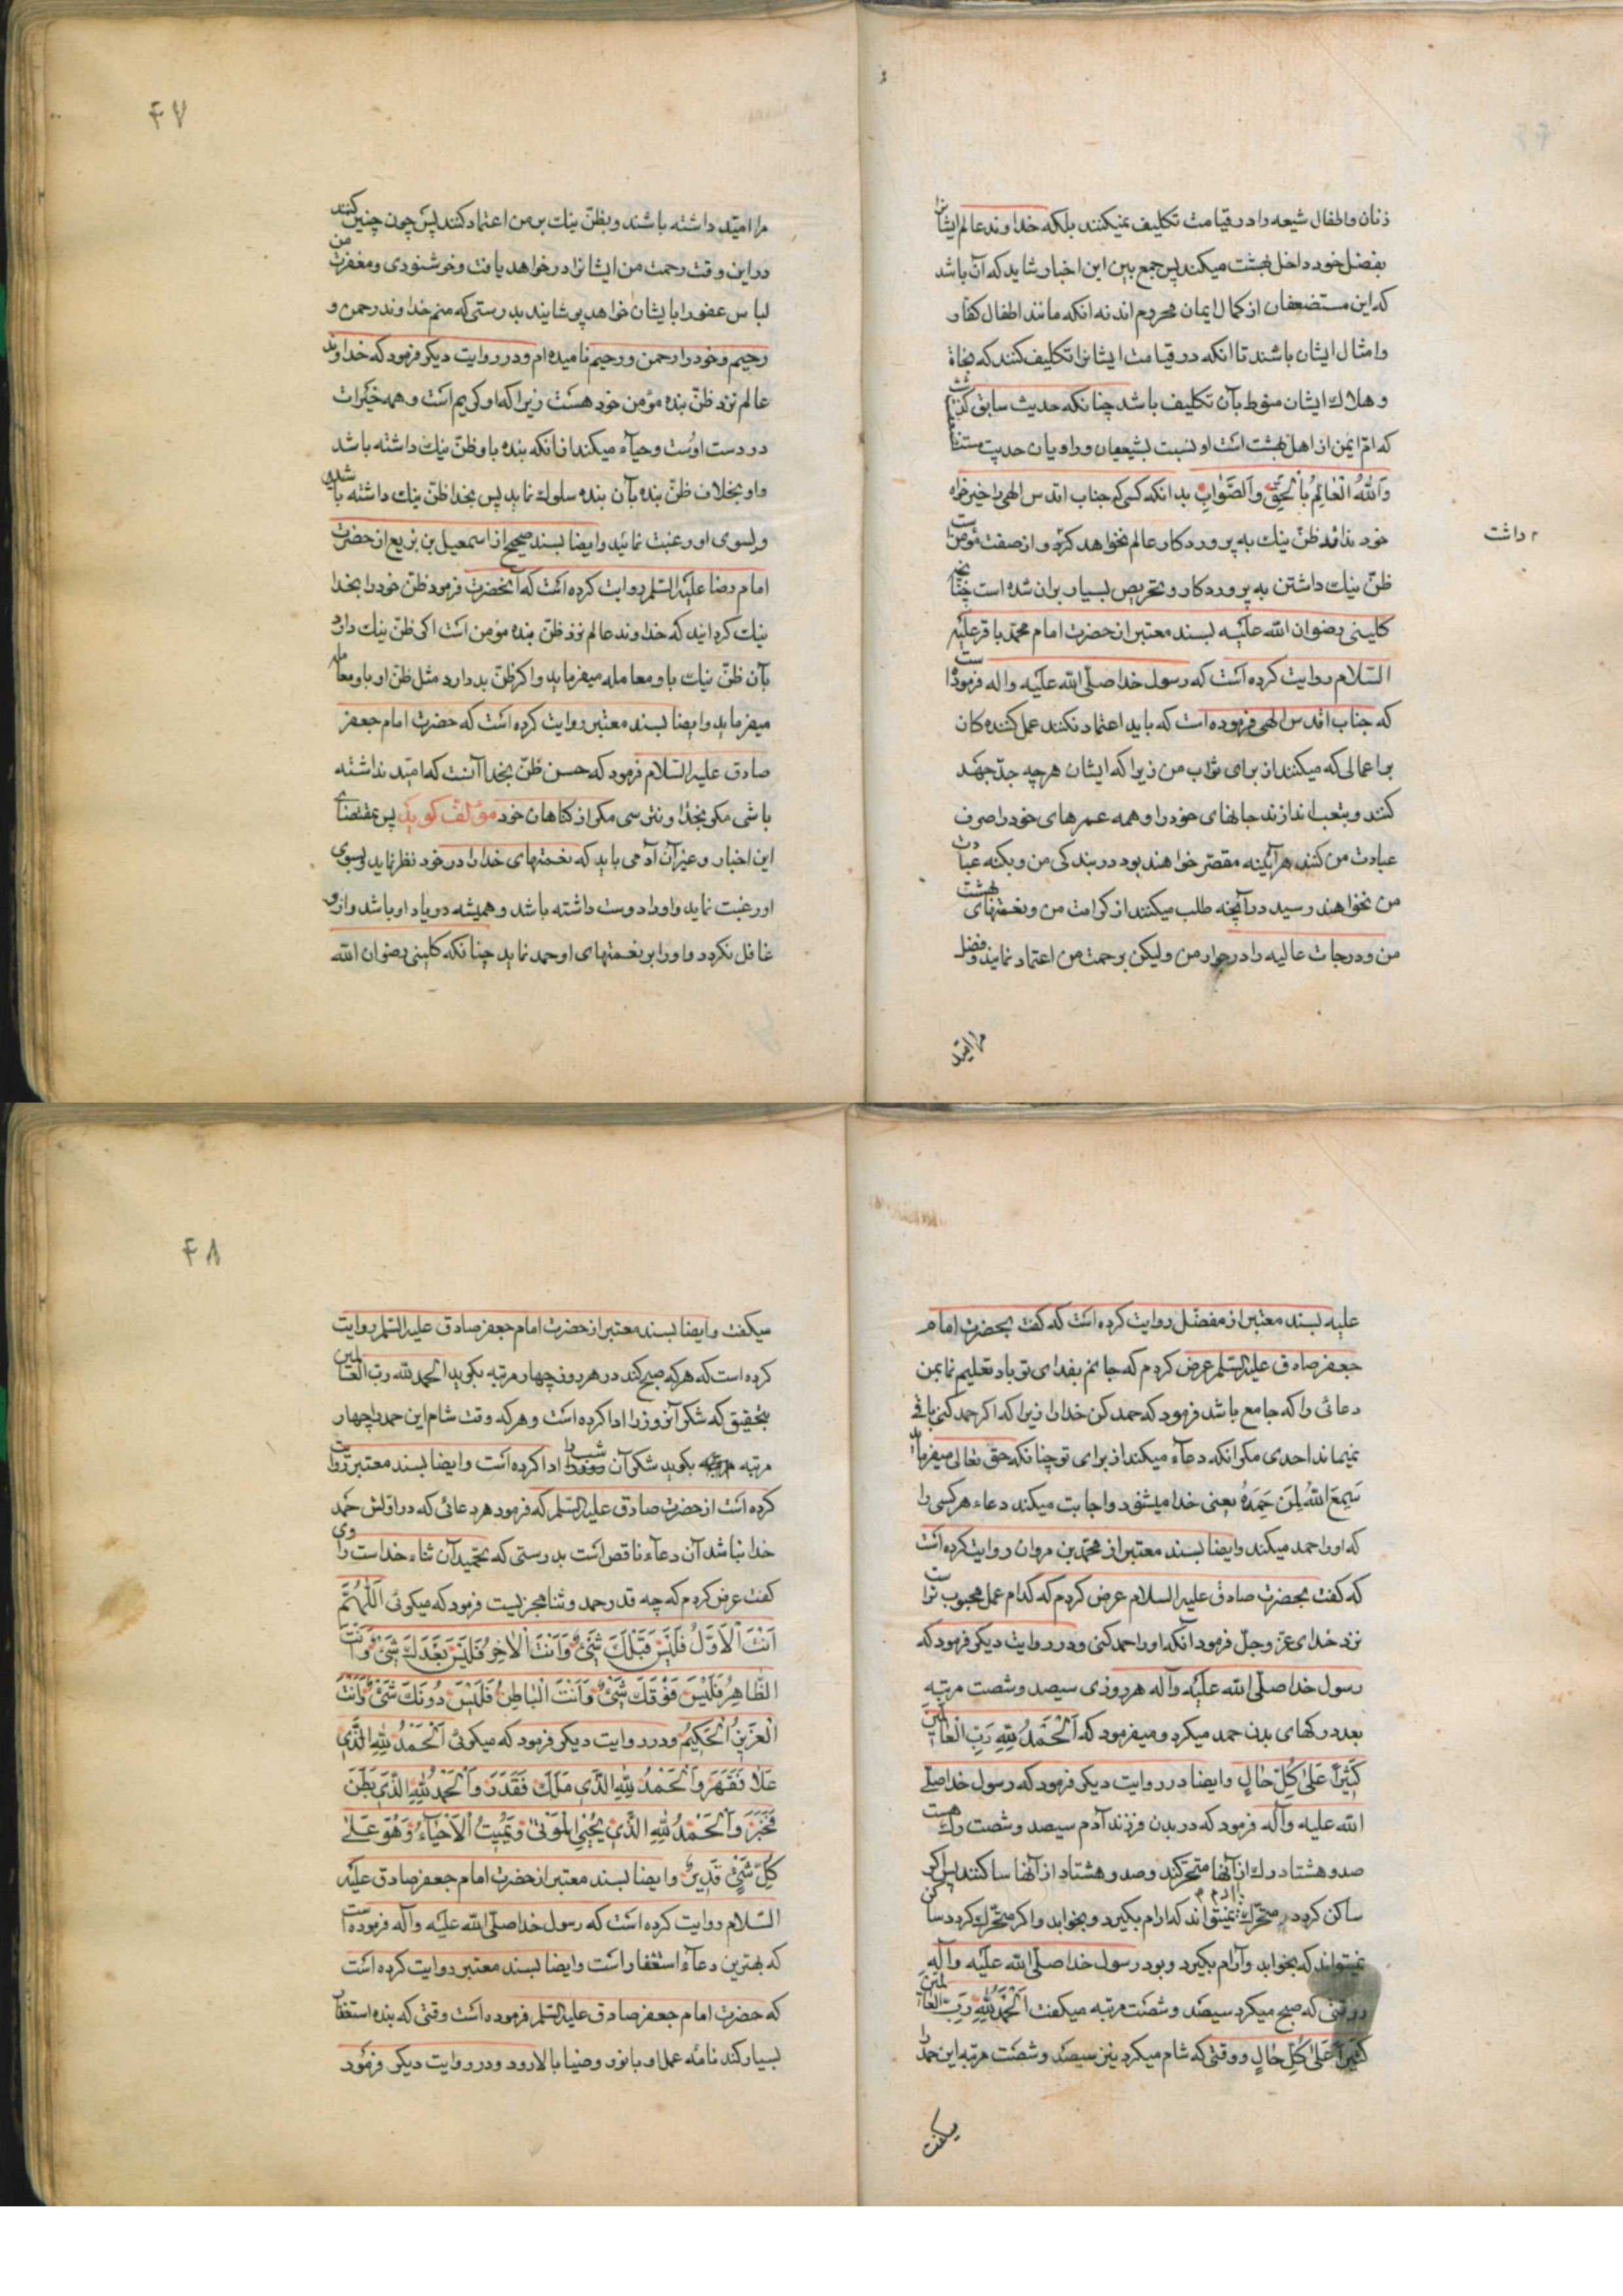 زنان و اطفال شیعه را در قیامت تکلیف نمیکنند بلکه خداوند عالم ایشانرا
بفضل خود داخل بهشت میکند پس جمع بین این اخبار شاید که آن باشد
که این مستضعفان از کمال ایمان محروم اند نه انکه مانند اطفال کفار
و امثال ایشان باشند تا انکه در قیامت ایشانرا تکلیف کنند که نجاة
و هلاك ایشان منوط بآن تکلیف باشد چنانکه حدیث سابق گذشت
که ام ایمن از اهل بهشت است او نسبت بشیعیان و راویان حدیث
وَاللهُ الْعَالِمُ بِالْحَقِّ وَالصَّوَابِ بدانکه کسی که جناب اقدس الهی را خیرخواه
خود نداند ظنّ نیك به پروردکار عالم نخواهد کرد و از صفت مؤمن است
داشت
ظنّ نیك داشتن به پروردکار و تحریص بسیار بران شده است چنانچه
کلینی رضوان الله علیه بسند معتبر از حضرت امام محمّد باقر علیه
السّلام روایت کرده است که رسول خدا صلّی الله علیه واله فرموده است
که جناب اقدس الهی فرموده است که باید اعتماد نکنند عمل کننده کان
بر اعمالی که میکنند از برای ثواب من زیرا که ایشان هرچه جدّ جهد
کنند و بتعب اندازند جانهای خود را و همه عمرهای خود را صرف
عبادت من کنند هرآینه مقصّر خواهند بود در بندکی من و بکنه عبادت
من نخواهند رسید در آنچه طلب میکنند از کرامت من و نعمتهای بهشت
من و درجات عالیه را در جوار من ولیکن برحمت من اعتماد نمایند و فضل
مرا امید
۴۷
مرا امیّد داشته باشند و بظنّ نیك بر من اعتماد کنند پس چون چنین کنند
در این وقت رحمت من ایشانرا در خواهد یافت و خوشنودی و مغفرت من
لباس عفو را بایشان خواهد پوشانید بدرستی که منم خداوند رحمن و
رحیم و خود را رحمن و رحیم نامیده ام و در روایت دیکر فرمود که خداوند
عالم نزد ظنّ بنده مؤمن خود هست زیرا که او کریم است و همه خیرات
در دست اوست و حیاء میکند از انکه بنده باو ظنّ نیك داشته باشد
و او بخلاف ظنّ بنده بآن بنده سلوك نماید پس بخدا ظنّ نیك داشته باشید
و بسوی او رغبت نمائید وایضا بسند صحیح از اسمعیل بن بزیع از حضرت
امام رضا علیه السّلم روایت کرده است که آنحضرت فرمود ظنّ خود را بخدا
نیك کردانید که خداوند عالم نزد ظنّ بنده مؤمن است اکر ظنّ نیك دارد
بآن ظنّ نیك باو معامله میفرماید و اکر ظنّ بد دارد مثل ظنّ او باو معامله
میفرماید وایضا بسند معتبر روایت کرده است که حضرت امام جعفر
صادق علیه السّلام فرمود که حسن ظنّ بخدا آنست که امیّد نداشته
باشی مکر بخدا و نترسی مکر از کناهان خود مؤلّف کوید پس بمقتضای
این اخبار و غیر آن آدمی باید که نعمتهای خدا را در خود نظر نماید و بسوی
او رغبت نماید و اورا دوست داشته باشد و همیشه در یاد او باشد و از او
غافل نکردد و اورا بر نعمتهای او حمد نماید چنانکه کلینی رضوان الله
علیه بسند معتبر از مفضّل روایت کرده است که گفت بحضرت امام
جعفر صادق علیه السّلم عرض کردم که جانم بفدای تو باد تعلیم نما بمن
دعائی را که جامع باشد فرمود که حمد کن خدا را زیرا که اکر حمد کنی باقی
نمیماند احدی مکر انکه دعاء میکند از برای تو چنانکه حق تعالی میفرماید
سَمِعَ اللهُ لِمَنْ حَمِدَهُ یعنی خدا میشنود و اجابت میکند دعاء هر کسی را
که اورا حمد میکند وایضا بسند معتبر از محمّد بن مروان روایت کرده است
که کفت بحضرت صادق علیه السلام عرض کردم که کدام عمل محبوب تراست
نزد خدای عزّ وجلّ فرمود انکه اورا حمد کنی و در روایت دیکر فرمود که
رسول خدا صلّی الله علیه وآله هر روزی سیصد و شصت مرتبه
بعدد رکهای بدن حمد میکرد و میفرمود که اَلْحَمْدُ لِلّهِ رَبِّ الْعالَمینَ
کَثیراً عَلی کُلِّ حالٍ وایضا در روایت دیکر فرمود که رسول خدا صلی
الله علیه وآله فرمود که در بدن فرزند آدم سیصد و شصت رك هست
صد و هشتاد رك از آنها متحرّکند و صد و هشتاد از آنها ساکنند پس اکر
ساکن کردد رك متحرّك نمیتواند که ارام بکیرد و بخوابد و اکر متحرّك کردد ساکن
نمیتواند که بخوابد و آرام بکیرد و بود رسول خدا صلّی الله علیه وآله
در وقتی که صبح میکرد سیصد و شصت مرتبه میکفت اَلْحَمْدُ لِلّهِ رَبِّ الْعالَمینَ
کَثیراً عَلی کُلِّ حالٍ و وقتی که شام میکرد نیز سیصد و شصت مرتبه این حمد را
میکفت
۴۸
میکفت وایضا بسند معتبر از حضرت امام جعفر صادق علیه السّلم روایت
کرده است که هر که صبح کند در هر روز چهار مرتبه بکوید الحمد لله ربّ العالمین
بتحقیق که شکر آنروز را ادا کرده است و هر که وقت شام این حمد را چهار
مرتبه بکوید شکر آن شب را ادا کرده است وایضا بسند معتبر روایت
کرده است از حضرت صادق علیه السّلم که فرمود هر دعائی که در اوّلش حمد
خدا نباشد آن دعاء ناقص است بدرستی که تحمید آن ثناء خداست راوی
کفت عرض کردم که چه قدر حمد و ثنا مجزیست فرمود که میکوئی اَللّهُمَّ
اَنْتَ الْاَوَّلُ فَلَیْسَ قَبْلَكَ شَیْئٌ وَاَنْتَ الْاخِرُ فَلَیْسَ بَعْدَكَ شَیْئٌ وَاَنْتَ
الظّاهِرُ فَلَیْسَ فَوْقَكَ شَیْئٌ وَاَنْتَ الْباطِنُ فَلَیْسَ دُونَكَ شَیْئٌ وَاَنْتَ
الْعَزیزُ الْحَکیمُ و در روایت دیکر فرمود که میکوئی اَلْحَمْدُ لِلّهِ الَّذی
عَلا فَقَهَرَ وَالْحَمْدُ لِلّهِ الَّذی مَلَكَ فَقَدَرَ وَالْحَمْدُ لِلّهِ الَّذی بَطَنَ
فَخَبَرَ وَالْحَمْدُ لِلّهِ الَّذی یُحْیِی الْمَوْتی وَیُمیتُ الْاَحْیاءَ وَهُوَ عَلی
کُلِّ شَیْئٍ قَدیرٌ وایضا بسند معتبر از حضرت امام جعفر صادق علیه
السّلام روایت کرده است که رسول خدا صلّی الله علیه وآله فرموده است
که بهترین دعاء استغفار است وایضا بسند معتبر روایت کرده است
که حضرت امام جعفر صادق علیه السّلم فرموده است وقتی که بنده استغفار
بسیار کند نامه عمل او با نور و ضیا بالا رود و در روایت دیکر فرمود